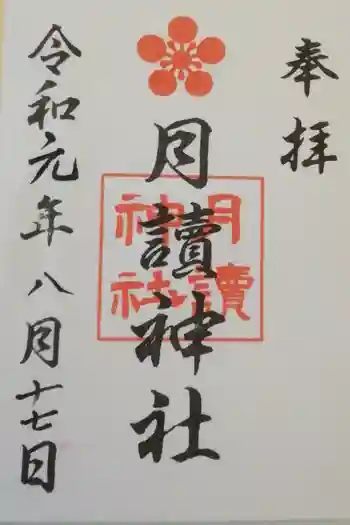 奉拝
月讀神社
月讀
神社
令和元年八月十七日